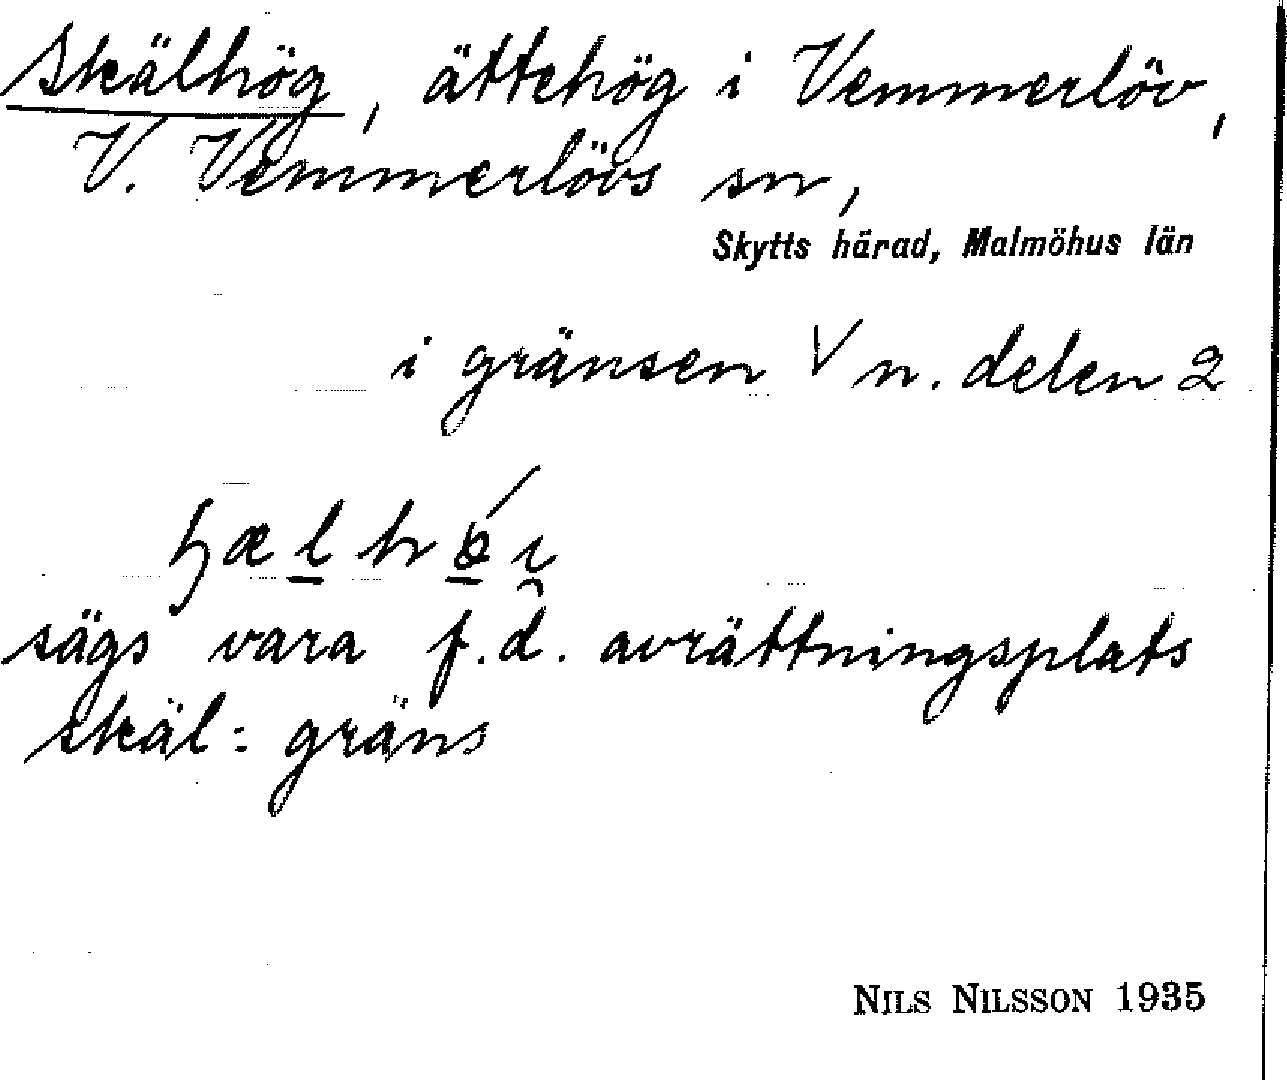 Skälhög, ättehög i Vemmerlöv,
V. Vemmerlövs sn,
Skytts härad, Malmöhus län
i gränsen V n. delen 2
sägs vara f.d. avrättningsplats
skäl = gräns
NILS NILSSON 1935